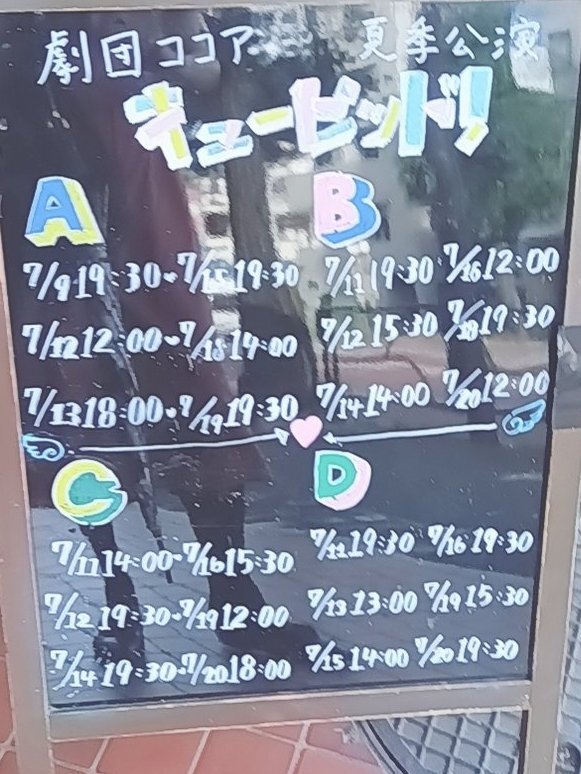 劇団ココア 夏季公演
キューピッド!
A
7/9 19:30・7/15 19:30
7/12 12:00・7/18 14:00
7/13 18:00・7/19 19:30
B
7/11 19:30 7/16 12:00
7/12 15:30 7/18 19:30
7/14 14:00 7/20 12:00
C
7/11 14:00・7/16 15:30
7/12 19:30・7/19 12:00
7/14 19:30・7/20 18:00
D
19:30 7/16 19:30
7/13 13:00 7/19 15:30
7/15 14:00 7/20 19:30